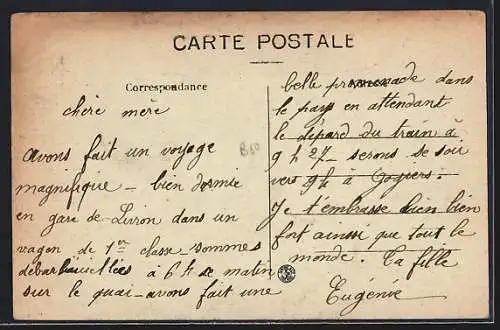 CARTE POSTALE
Correspondance
chère mère
avons fait un voyage
magnifique - bien dormie
en gare de Livron dans un
wagon de 1er classe sommes
débarbouillées à 6 h se matin
sur le quai - avons fait une
belle promenade dans
le pays en attendant
le dépard du train à
9 h 27 - serons se soir
vers 9h à
Je t'embrasse bien bien
fort ainsi que tout le
monde. Ta fille
Eugénie
B50